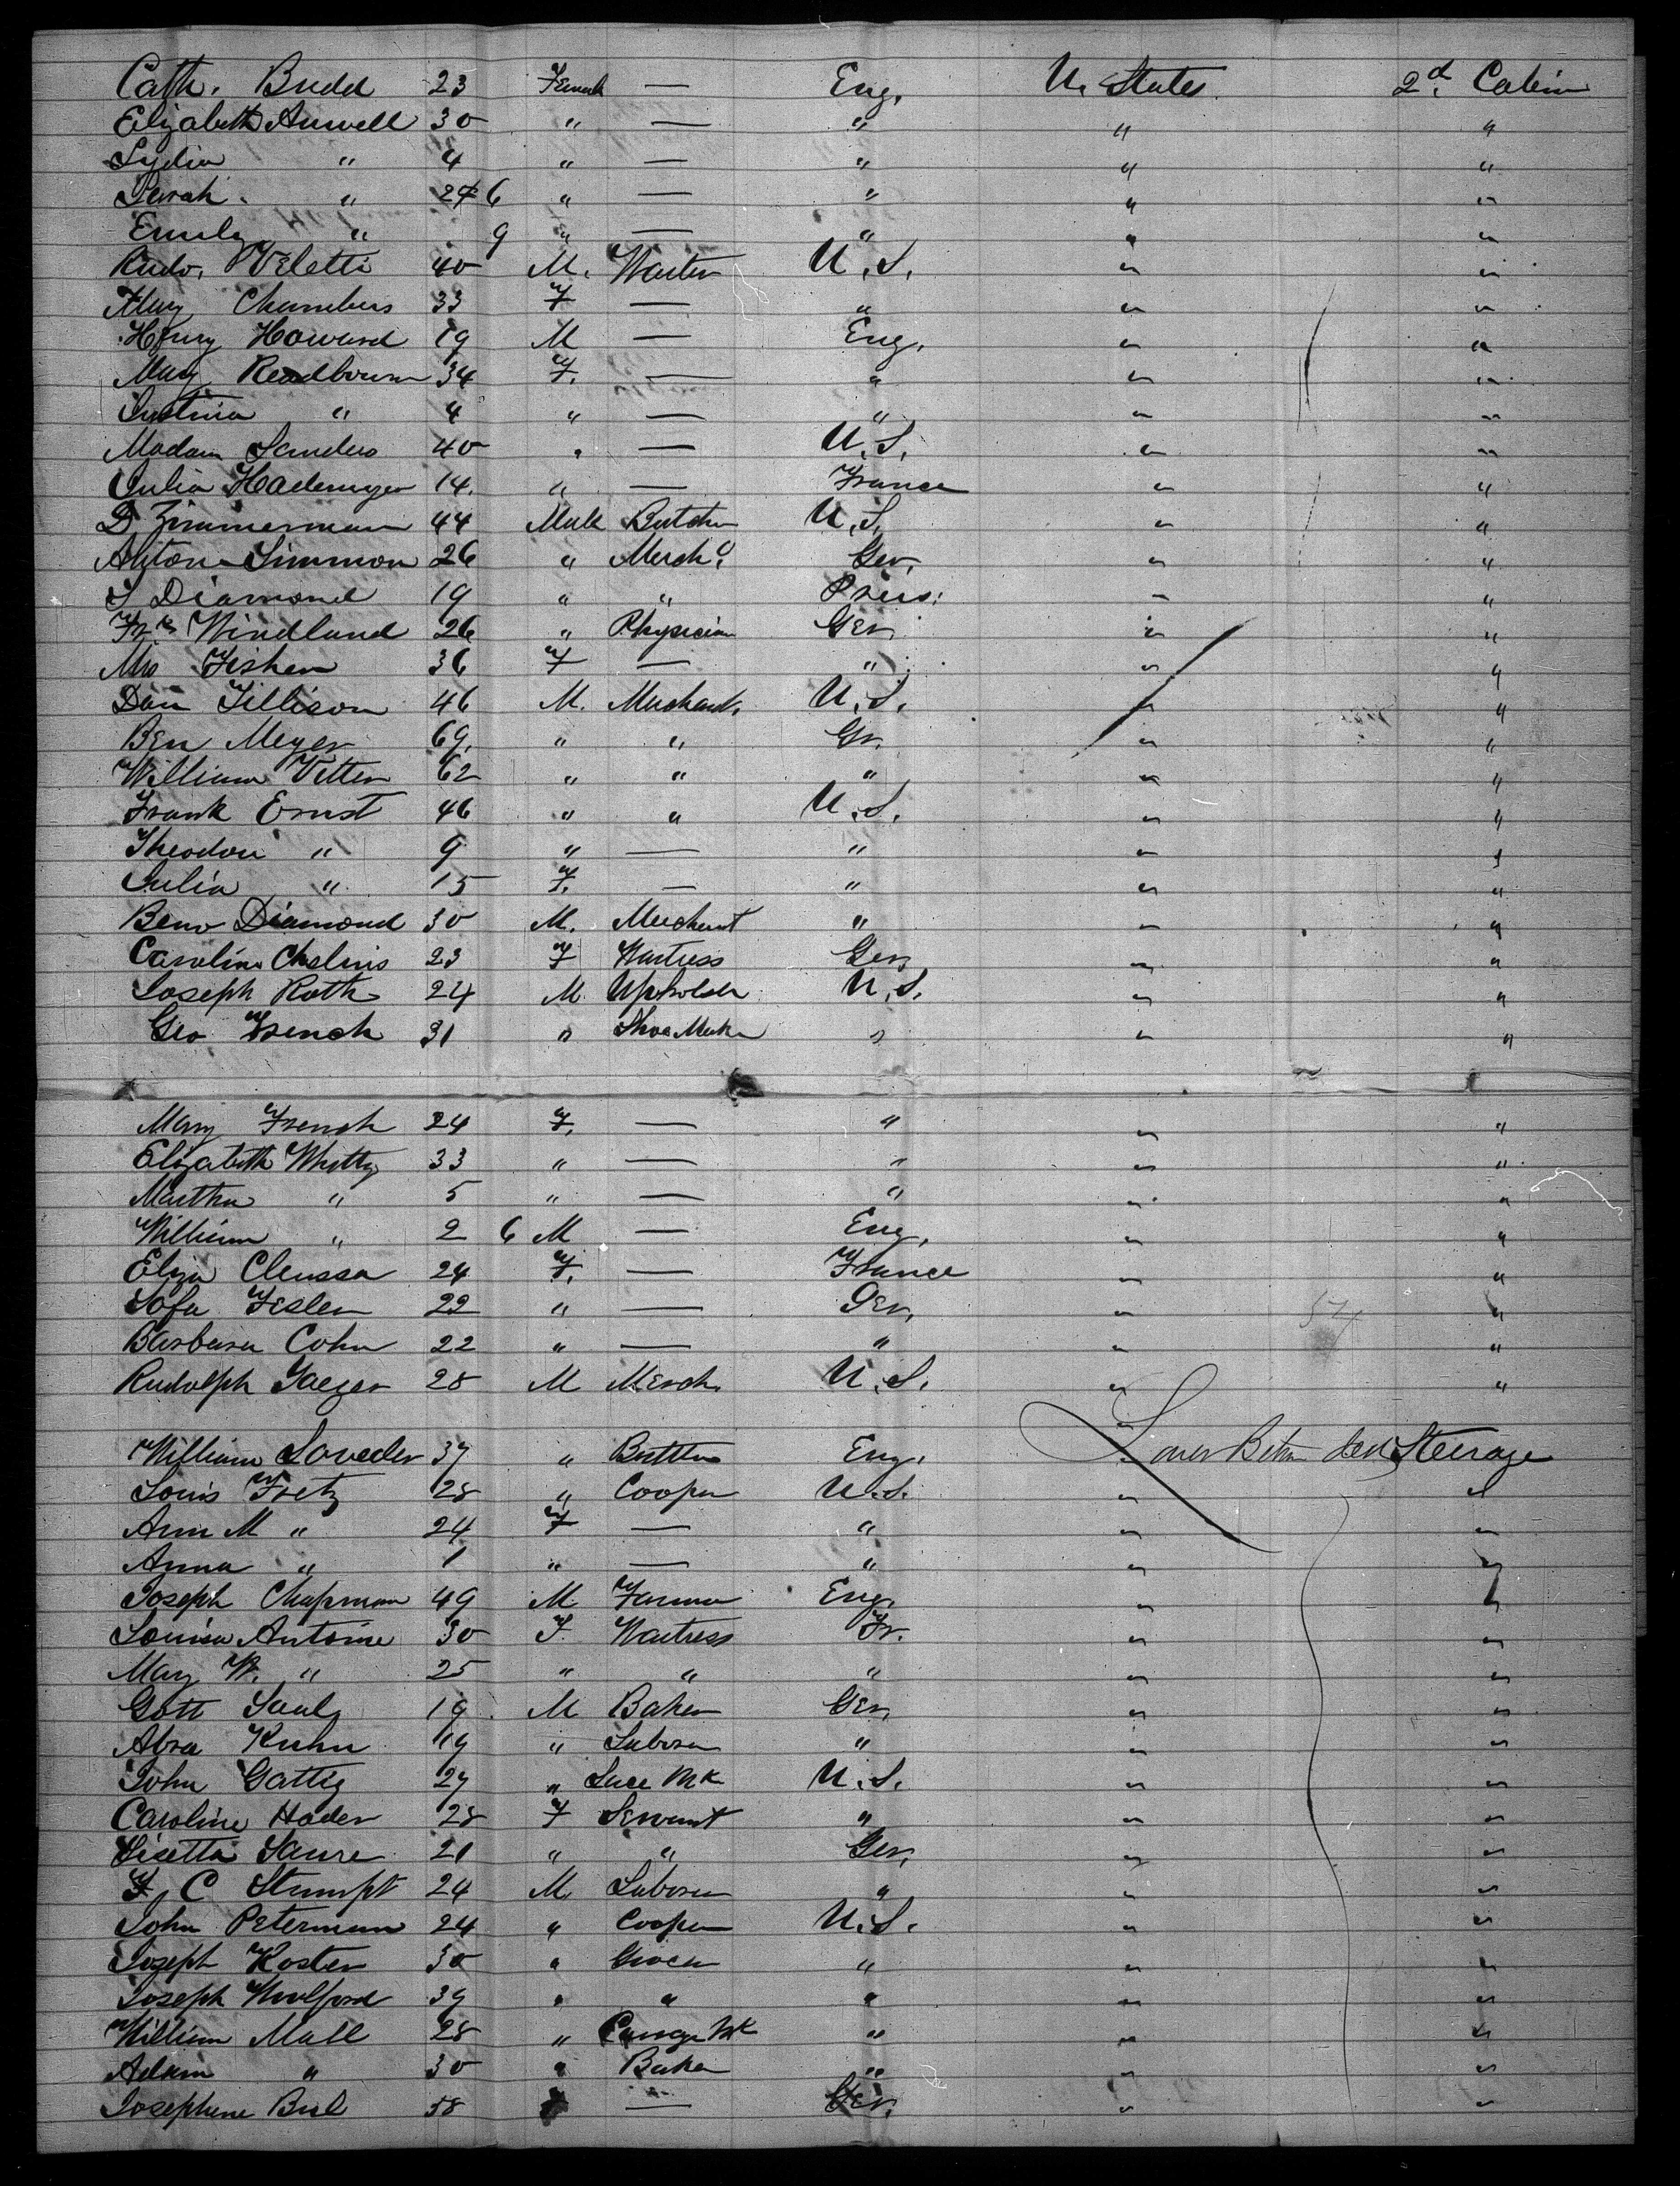 Cath. Budd 23 Female — Eng. U. States 2d. Cabin
Elizabeth Anwell 30 " — " " "
Lydia " 4 " — " " "
Sarah. " 2 6 " — " " "
Emily " 9 " — " " "
Rudo. Veletti 40 M. Waiter U.S. " "
Mary Chambers 33 F — " " "
Henry Howard 19 M — Eng. " "
Mary Readbourn 34 F. — " " "
Justina " 4 " — " " "
Madam Sanders 40 " — U.S. " "
Julia Hademeyer 14. " — France " "
D Zimmerman 44 Male Butcher U.S. " "
Anton Simmon 26 " Merch. Ger. " "
S Diamond 19 " " Prus. " "
Windland 26 " Physician Ger. " "
Mrs Fisher 36 F — " " "
Dan Tillison 46 M. Merchant. U.S. " "
Ben Meyer 69. " " Gr. " "
William Vetter 62 " " " " "
Frank Ernst 46 " " U.S. " "
Theodore " 9 " — " " "
Julia " 15 F. — " " "
Beno Diamond 30 M. Merchant " " "
Caroline Chelius 23 F Waitress Ger. " "
Joseph Roth 24 M. Upholster U.S. " "
Geo French 31 " Shoe Maker " " "
Mary French 24 F. — " " "
Elizabeth Whitty 33 " — " " "
Martha " 5 " — " " "
William " 2 6 M — Eng. " "
Eliza Clenssa 24 F. — France " "
Sofa Fesler 22 " — Ger. " "
Barbara Cohn 22 " — " " "
Rudolph Jaeger 28 M Merch. U.S. " "
William Loveder 37 " Eng. " Lower Betw deck Steerage
Louis Fretz 28 " Cooper U.S. " "
Ann M " 24 F — " " "
Anna " 1 " — " " "
Joseph Chapman 49 M Farmer Eng. " "
Louisa Antoine 30 F. Waitress Fr. " "
Mary W. " 25 " " " " "
Gott Saul 19 M Baker Ger. " "
Abra Kuhn 19 " Laborer " " "
John Gattig 27 " Lace Mk U.S. " "
Caroline Hader 28 F Servant " " "
Lisetta Saure 21 " " Ger. " "
F, C Stumpf 24 M Laborer " " "
John Peterman 24 " Cooper U.S. " "
Joseph Koster 30 " Grocer " " "
Joseph Woolford 39 " " " " "
William Mall 28 " Carriage Mk " " "
Adam " 30 " Baker " " "
Josephine Bul 58 F — Ger. " "